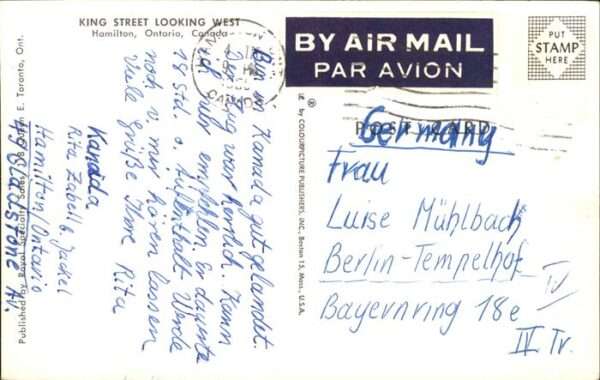 KING STREET LOOKING WEST
Hamilton, Ontario, Canada
BY AIR MAIL
PAR AVION
PUT
STAMP
HERE
POST CARD
Germany
Frau
Luise Mühlbach
Berlin-Tempelhof
Bayernring 18e
IV Tr.
Bin in Kanada gut gelandet.
Der Flug war herrlich. Kann
ich nur empfehlen. Er dauerte
18 Std. o. Aufenthalt. Werde
noch v. mir hören lassen
Viele Grüße Ihre Rita
Kanada
Rita Zabell b. Jackel
Hamilton/Ontario
49 Gladstone Av.
Published by Royal Specialty Sales, 38 Queen E. Toronto, Ont.
® by COLOURPICTURE PUBLISHERS, INC., Boston 15, Mass., U.S.A.